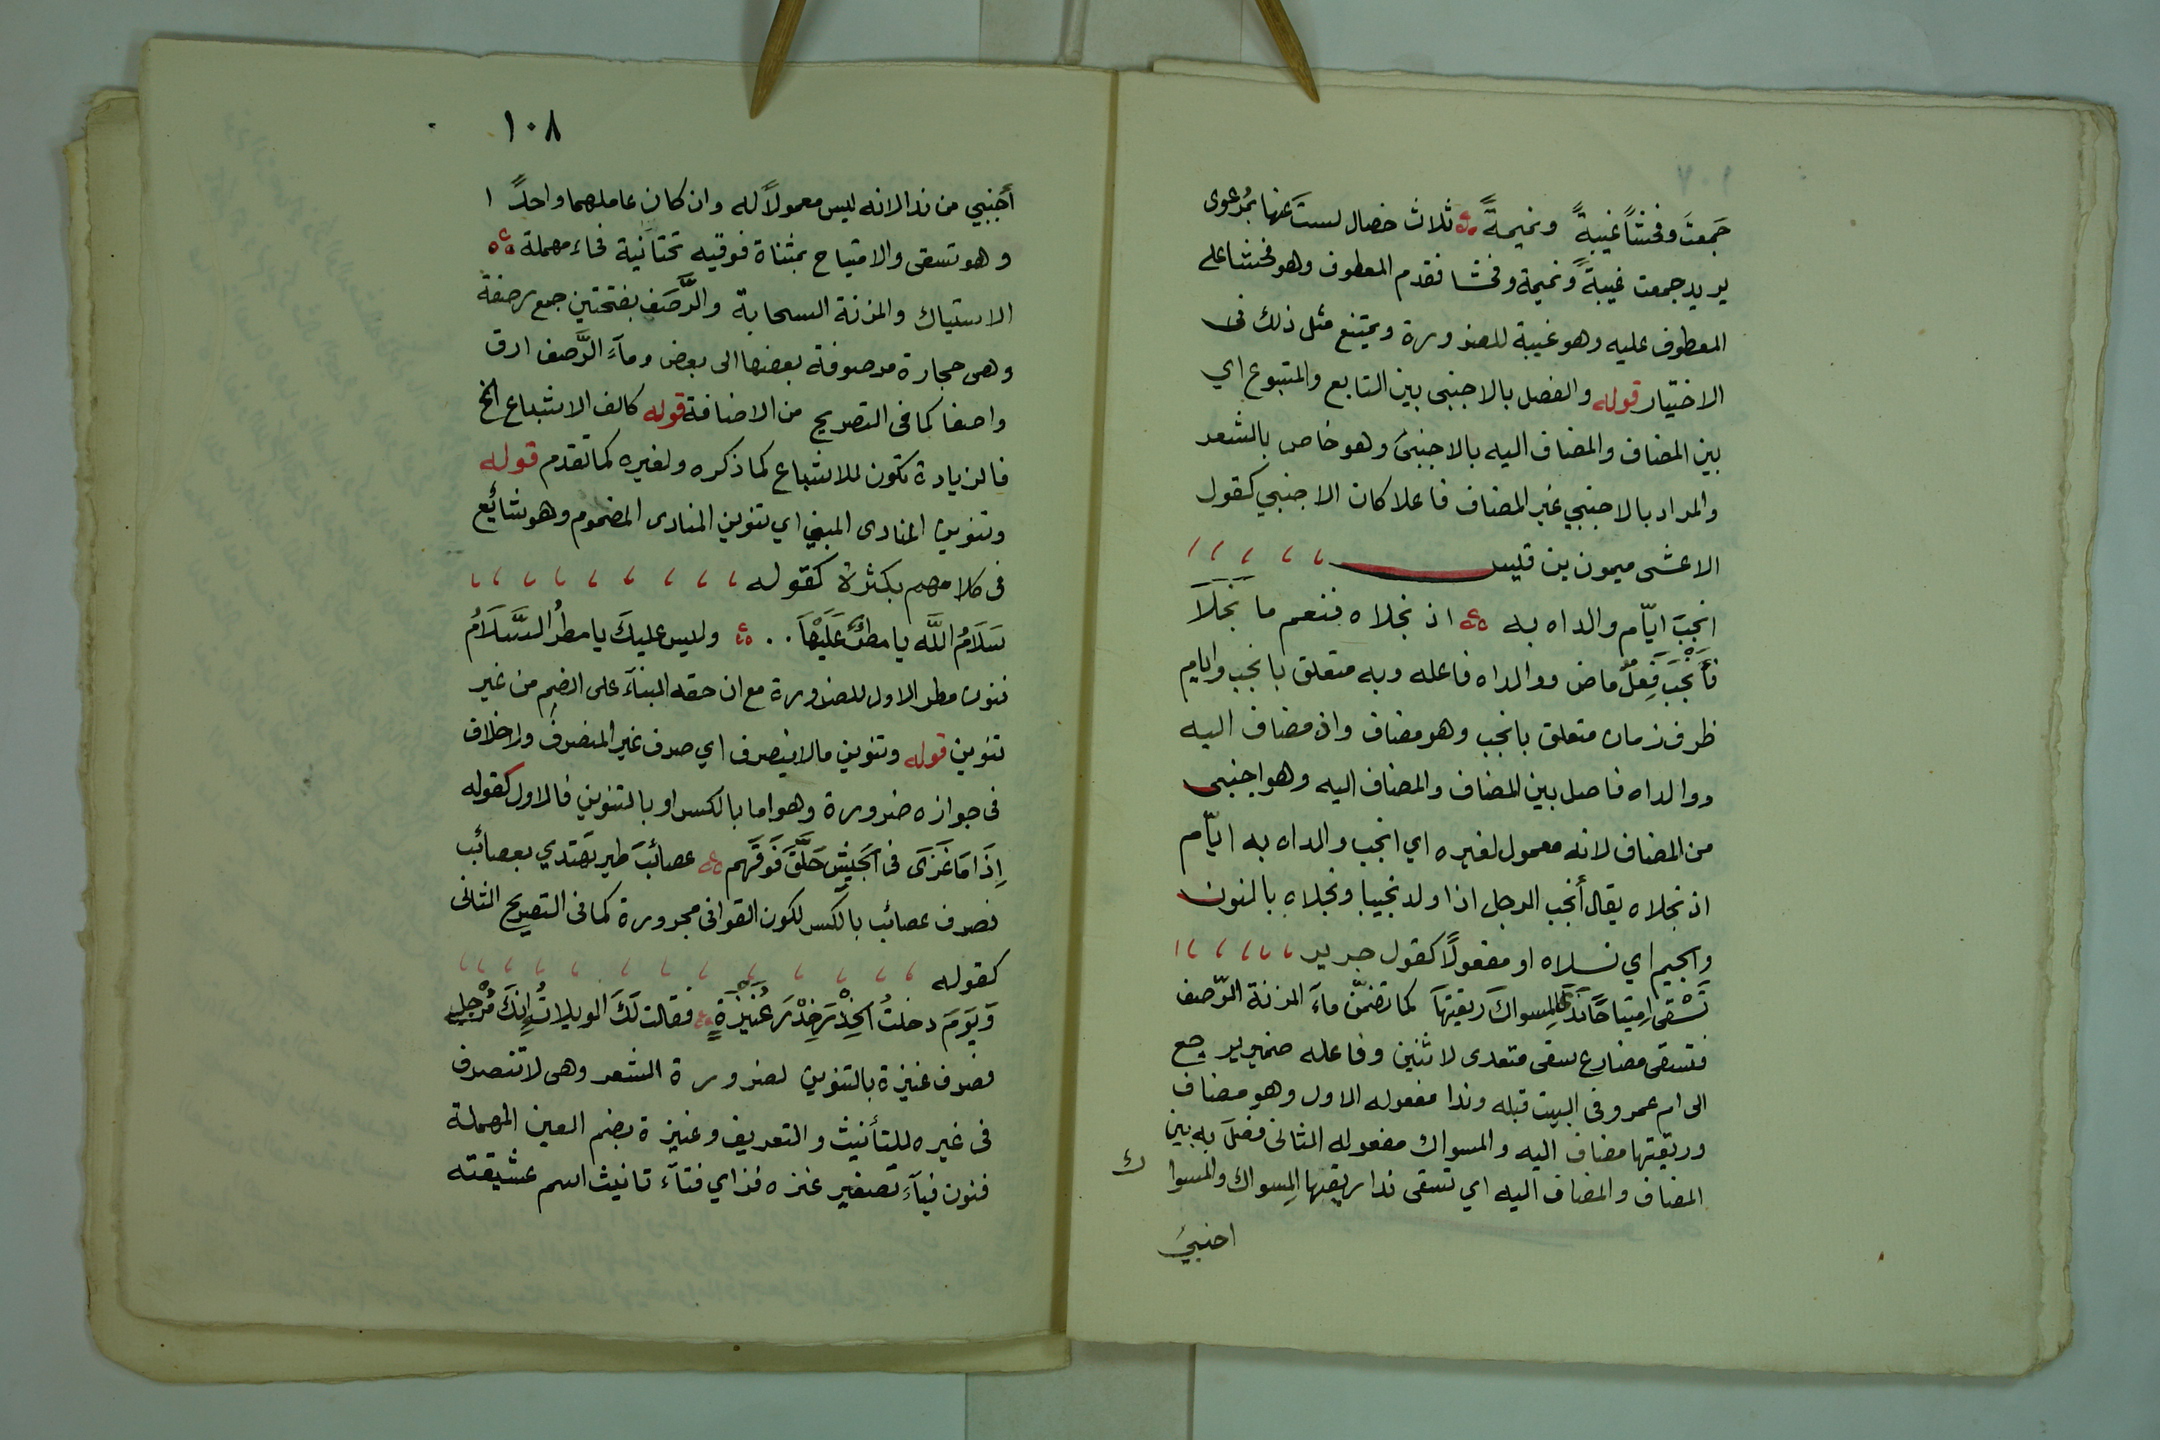 جَمعتَ وفحشًا غيبةً ونميمةً ثلاث خصال لستَ عنها بمُرعوى
يريد جمعت غيبةً ونميمة وفحشا فقدم المعطوف وهو فحشا على
المعطوف عليه وهو غيبة للضرورة ويمتنع مثل ذلك فى
الاختيار قوله والفصل بالاجنبى بين التابع والمتبوع اي
بين المضاف والمضاف اليه بالاجنبى وهو خاص بالشعر
والمراد بالاجنبي غير المضاف فاعلا كان الاجنبي كقول
الاعشى ميمون بن قيس
انجبَ ايّام والداه به اذ نجلاه فنعم ما نَجَلَا
فأَنْجَبَ فِعلٌ ماض ووالداه فاعله وبه متعلق بانجب وايام
ظرف زمان متعلق بانجب وهو مضاف واذ مضاف اليه
ووالداه فاصل بين المضاف والمضاف اليه وهو اجنبى
من المضاف لانه معمول لغيره اي انجب والداه به ايّام
اذ نجلاه يقال أنجب الرجل اذا ولد نجيبا ونجلاه بالنون
والجيم اي نسلاه او مفعولًا كقول جرير
تَسْقى امتياحًا نَدَى المِسواكَ ريقتِها كما تضمّن ماءَ المزنة الرّصف
فتسقى مضارع سقى متعدى لاثنين وفاعله ضمير يرجع
الى ام عمرو فى البيت قبله وندا مفعوله الاول وهو مضاف
وريقتها مضاف اليه والمسواك مفعوله الثانى فصلَ به بين
المضاف والمضاف اليه اي تسقى ندا ريقتها المِسواك والمسواك
اجنبيٌ
١٠٨
أجنبي من ندا لانه ليس معمولًا له وان كان عاملهما واحدًا
وهو تسقى والامتياح بمثناة فوقيه تحتانية فحاء مهملة
الاستياك والمزنة السحابة والرَّصَف بفتحتين جمع رصفة
وهى حجارة مرصوفة بعضها الى بعض وماءَ الرَّصف ارق
واصفا كما فى التصريح من الاضافة قوله كالف الاشباع الخ
فالزيادة تكون للاشباع كما ذكره ولغيره كما تقدم قوله
وتنوين المنادى المبني اي تنوين المنادى المضموم وهو شائع
فى كلامهم بكثرة كقوله
سَلَامُ اللَّه يا مطرٌ عَلَيْهَا وليس عليكَ يا مطرُ السَّلَامُ
فنون مطر الاول للضرورة مع ان حقه البناءَ على الضم من غير
تنوين قوله وتنوين مالا ينصرف اي صرف غير المنصرف ولا خلاف
فى جوازه ضرورة وهو اما بالكسر او بالتنوين فالاول كقوله
إِذَا مَا غَزَى فى الجَيْشِ حَلَّقَ فَوقَهم عصائبَ طير تهتدي بعصائب
فصرف عصائب بالكسر لكون القوافى مجرورة كما فى التصريح الثانى
كقوله
وَيَومَ دخلتُ الخِدْرَ خِدْرَ عُنَيْزَةٍ فقالت لَكَ الويلاتُ إِنكَ مُرْجِلي
فصرف عنيزة بالتنوين لضرورة الشعر وهى لا تنصرف
فى غيره للتأنيث والتعريف وعنيزة بضم العين المهملة
فنون فياءَ تصغير عنزه فزاي فتآء تانيث اسم عشيقته